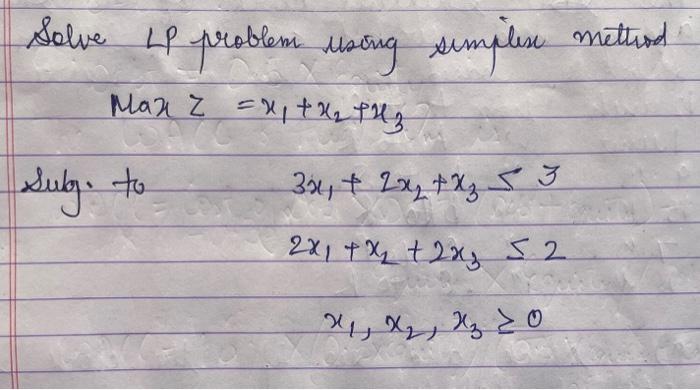 Solve LP problem using simplex method
Max Z = x₁ + x₂ + x₃
Subj. to 3x₁ + 2x₂ + x₃ ≤ 3
2x₁ + x₂ + 2x₃ ≤ 2
x₁, x₂, x₃ ≥ 0